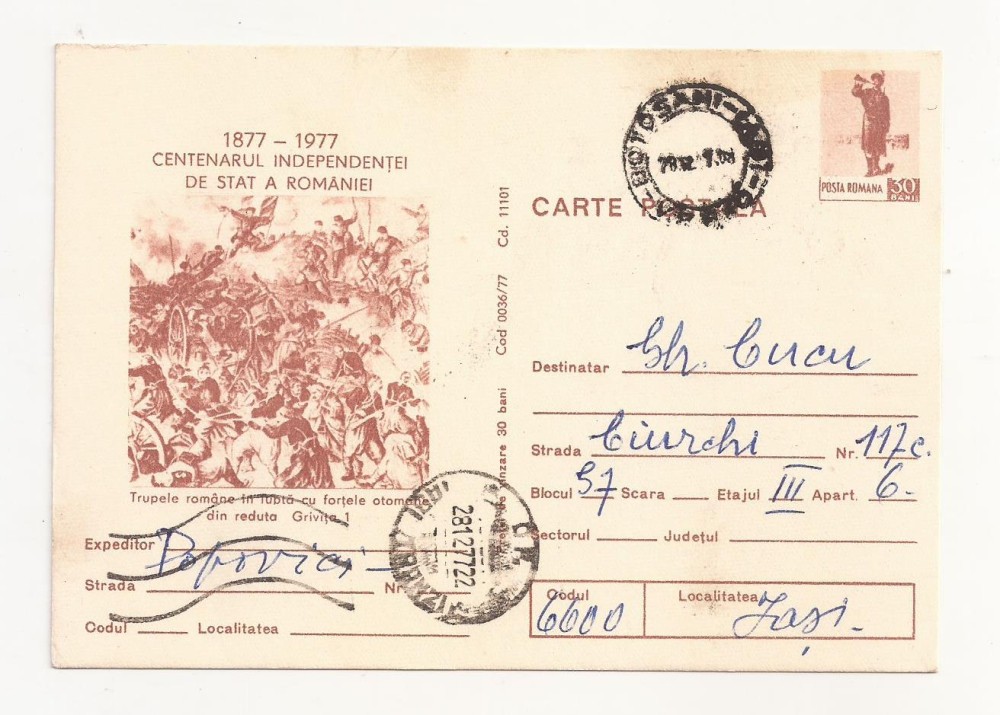 1877 - 1977
CENTENARUL INDEPENDENȚEI
DE STAT A ROMÂNIEI
Trupele române în luptă cu forțele otomane
din reduta Grivița 1
Expeditor Popovici
Strada Nr.
Codul Localitatea
Cod 0036/77 Cd. 11101
30 bani
BOTOȘANI-IAȘI
POSTA ROMANA 30
BANI
CARTE POȘTALĂ
Destinatar Gh. Cucu
Strada Ciurchi Nr. 117c.
Blocul S7 Scara Etajul III Apart. 6.
Sectorul Județul
Codul Localitatea
6600 Iași.
IAȘI
281277